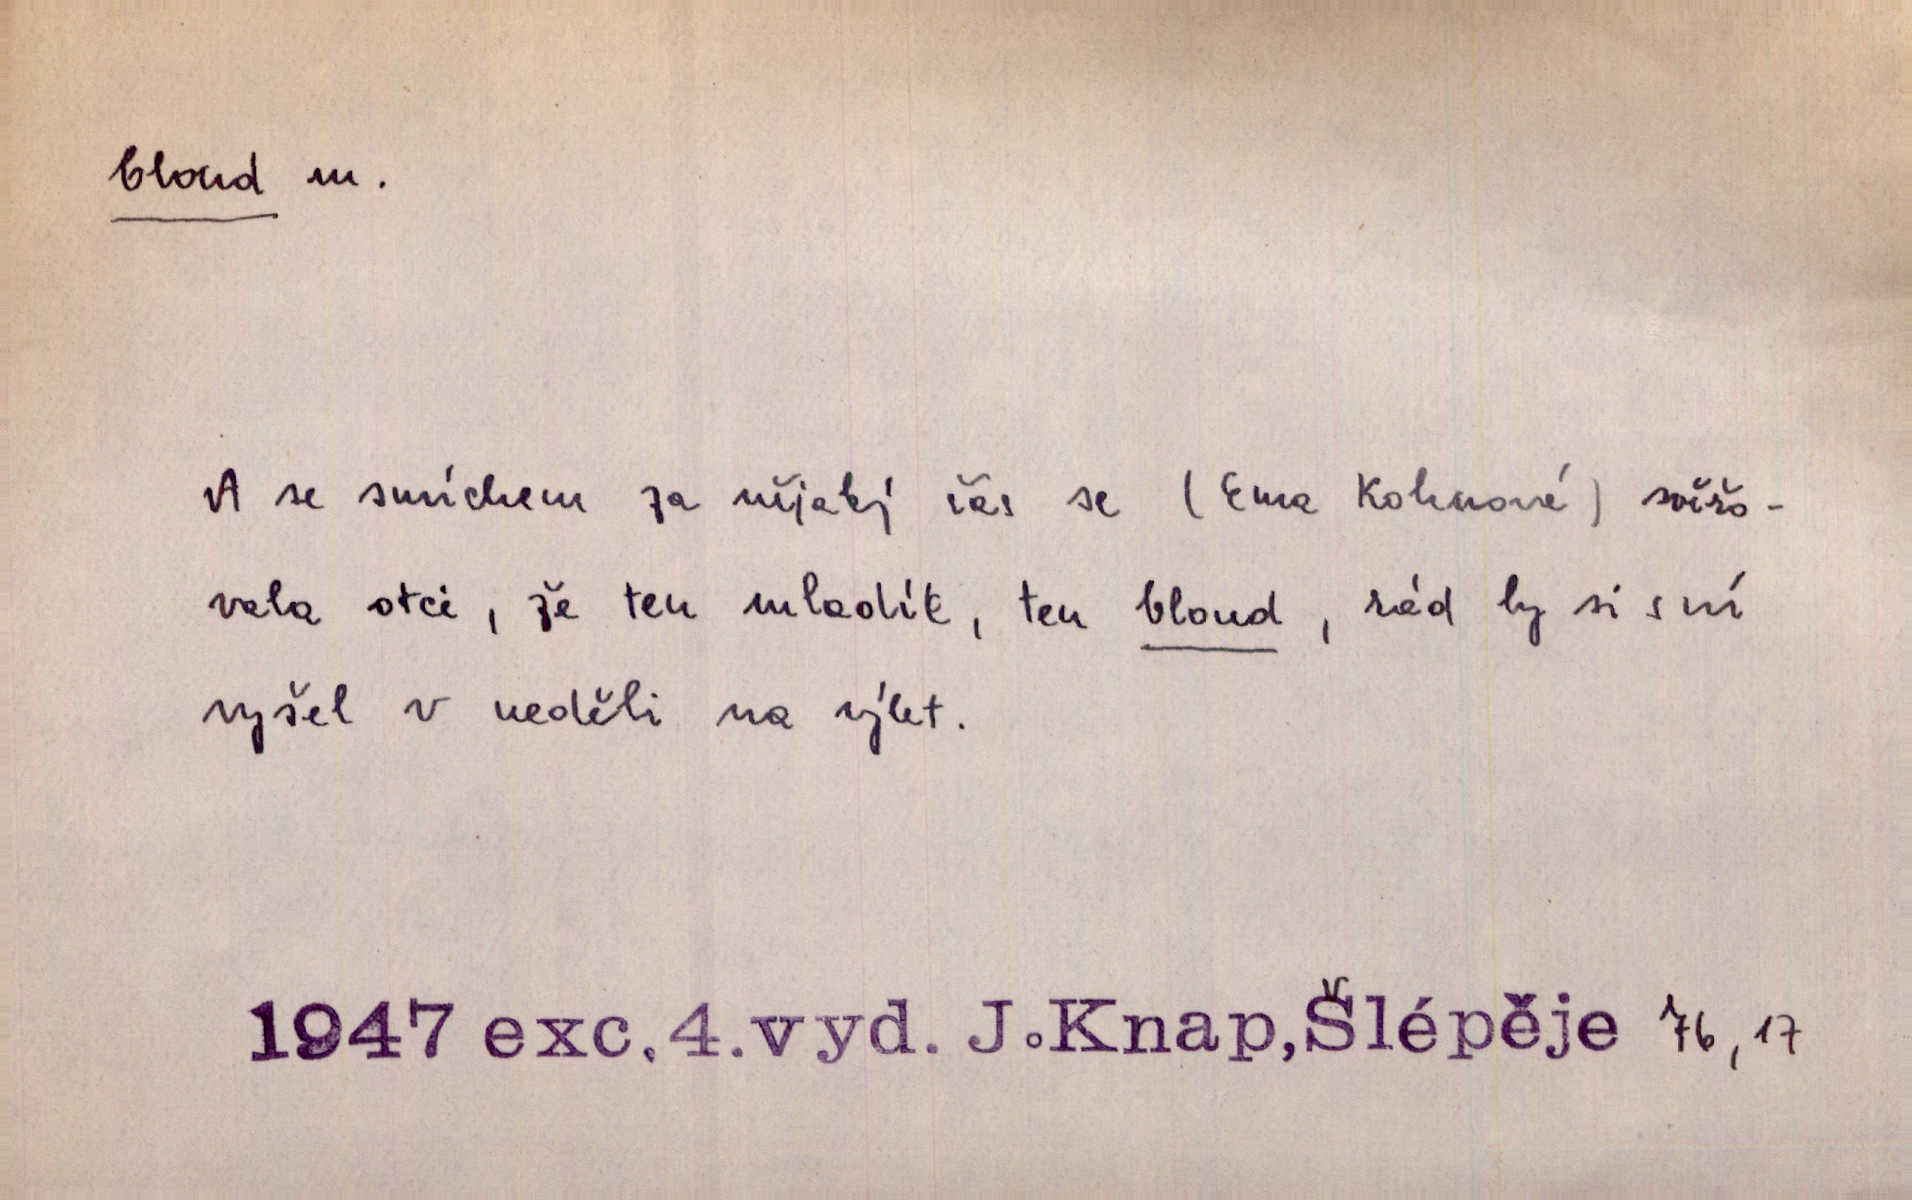 bloud m.
A se smíchem za nějaký čas se (Ema Kohnové) svěřo-
vala otci, že ten mladík, ten bloud, rád by si s ní
vyšel v neděli na výlet.
1947 exc. 4. vyd. J. Knap, Šlépěje 76, 17